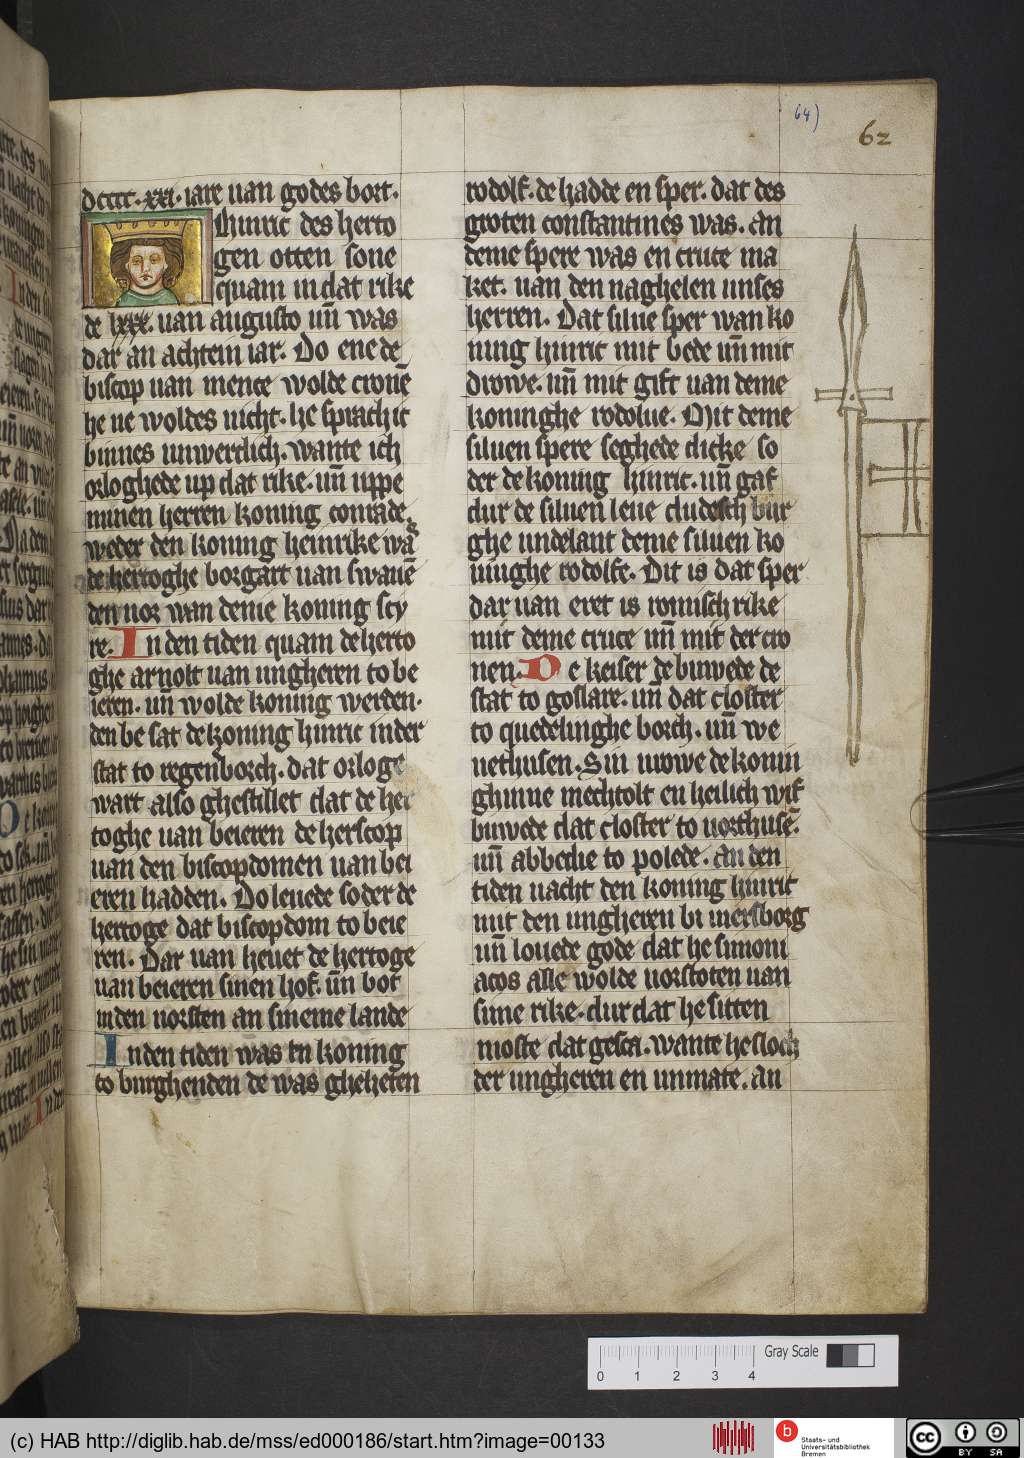 64)
62
dcccc·xxi·iare uan godes bort·
hinric des herto
gen otten sone
quam in dat rike
de lxxx. uan augusto un̄ was
dar an achtein iar. Do ene de
biscop uan mence wolde cronē
he ne woldes nicht. he sprach ic
binnes unwerdich. wante ich
orloghede up dat rike. un̄ uppe
minen herren koning conrade.
weder den koning heinrike wā
de hertoghe borgart uan swauē
den uor wan deme koning scy
re. In den tiden quam de herto
ghe arnolt uan ungheren to be
ieren. un̄ wolde koning werden.
den be sat de koning hinric in der
stat to regenborch. dat orloge
wart also ghestillet dat de her
toghe uan beieren de herscop
uan den biscopdomen uan bei
eren hadden. Do leuede so der de
hertoge dat biscopdom to beie
ren. Dar uan heuet de hertoge
uan beieren sinen hof. un̄ bot
in den uorsten an sineme lande
In den tiden was en koning
to burghenden de was gheheten
rodolf. de hadde en sper. dat des
groten constantines was. an
deme spere was en cruce ma
ket. uan den naghelen unses
herren. Dat silue sper wan ko
ning hinric mit bede un̄ mit
drowe. un̄ mit gift uan deme
koninghe rodolue. Mit deme
siluen spere seghede dicke so
der de koning hinric. un̄ gaf
dur de siluen leue dudesch bur
ghe undelant deme siluen ko
ninghe rodolfe. Dit is dat sper
dar uan eret is romisch rike
mit deme cruce un̄ mit der cro
nen. De keiser de buwede de
stat to goslare. un̄ dat closter
to quedelinghe borch. un̄ we
nethusen. Sin urowe de konin
ghinne mechtolt en heilich wif
buwede dat closter to northusē.
un̄ abbedie to polede. an den
tiden uacht den koning hinric
mit den ungheren bi mersborg
un̄ louede gode dat he simoni
acos alle wolde uorstoten uan
sime rike. dur dat he sitten
moste dat gesca. wante he sloch
der ungheren en unmate. an
Gray Scale
0 1 2 3 4
(c) HAB http://diglib.hab.de/mss/ed000186/start.htm?image=00133
b
Staats- und
Universitätsbibliothek
Bremen
cc BY SA